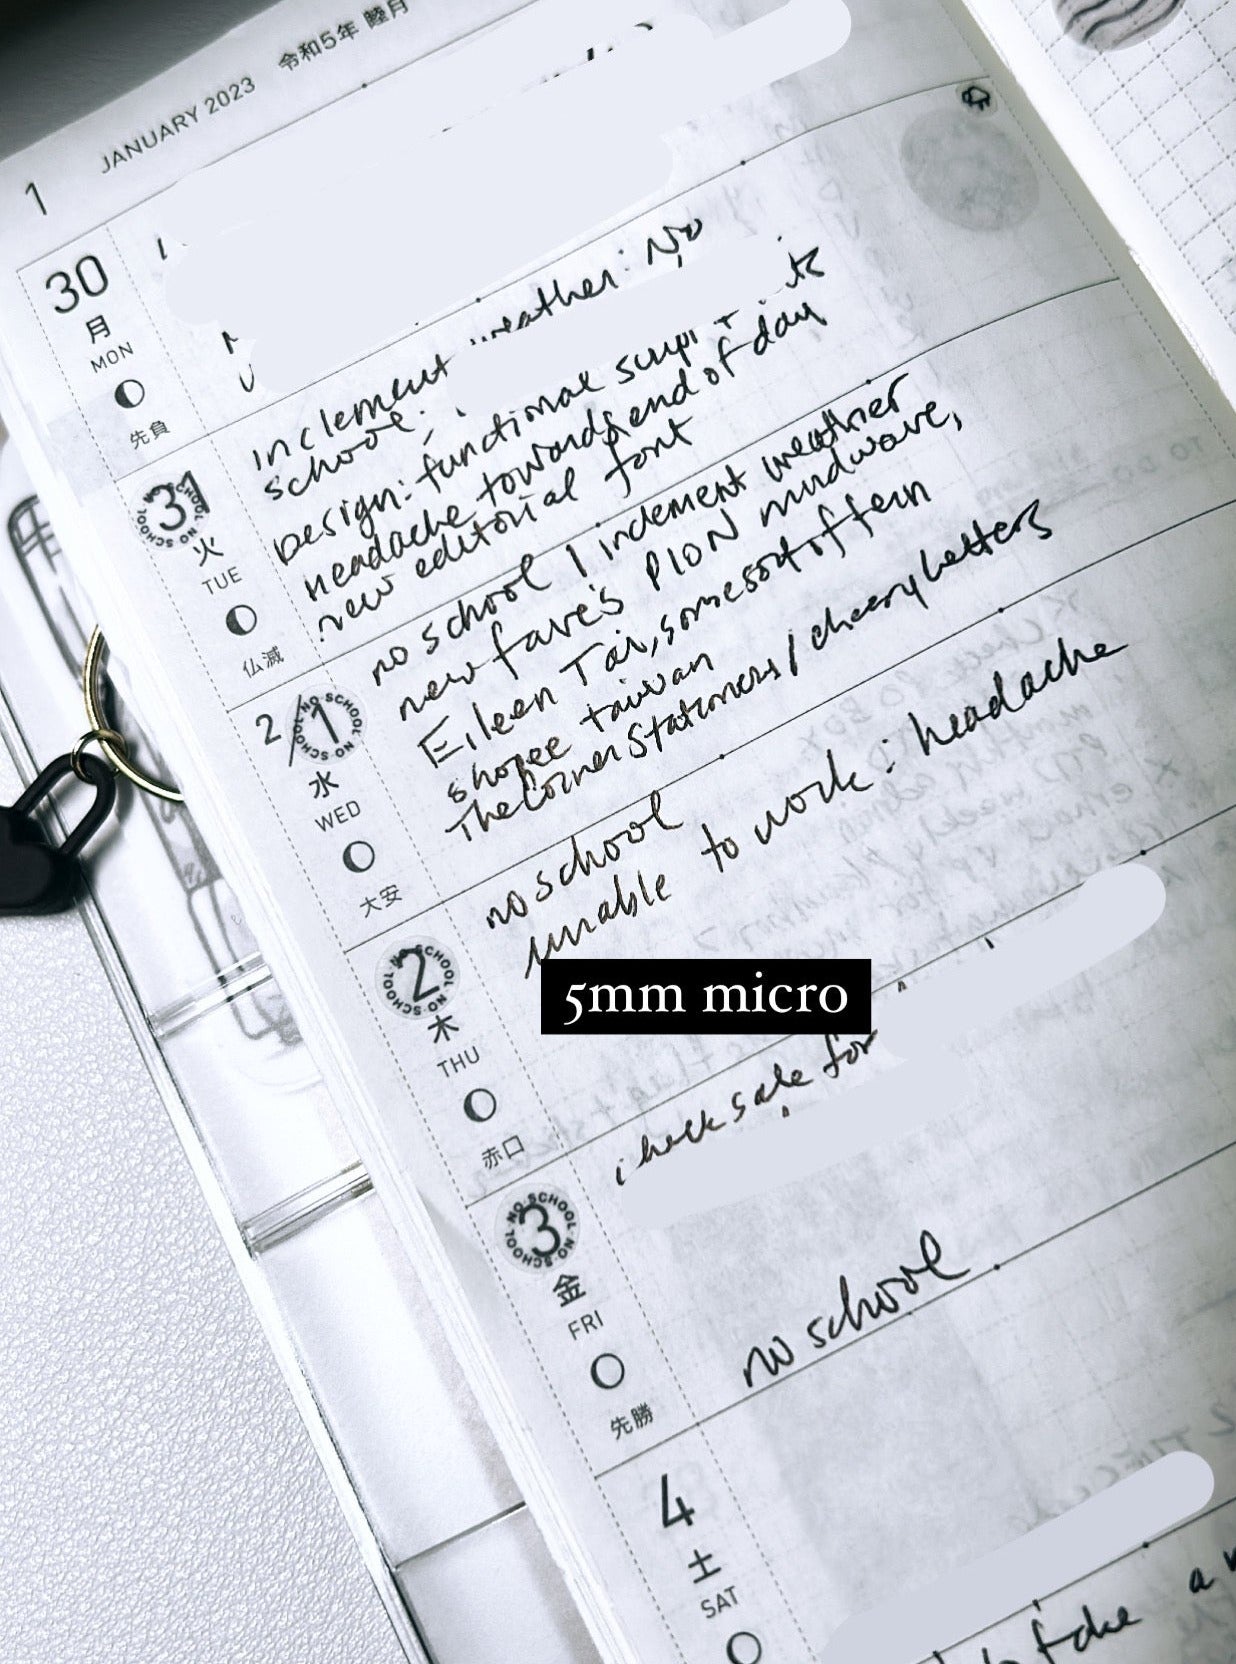 JANUARY 2023 令和5年 睦月
1
30
月
MON
先負
inclement weather: No
school;
Design: functional script
headache towards end of day
new editorial font
NO SCHOOL NO SCHOOL
31
火
TUE
仏滅
no school / inclement weather
new fave's PION mindwave,
Eileen Tai, some sort of fern
shopee taiwan
The Corner Stationers / cheery letters
NO SCHOOL NO SCHOOL
2/1
水
WED
大安
no school
unable to work: headache
NO SCHOOL NO SCHOOL
2
木
THU
赤口
5mm micro
check sale for
NO SCHOOL NO SCHOOL
3
金
FRI
先勝
no school
4
土
SAT